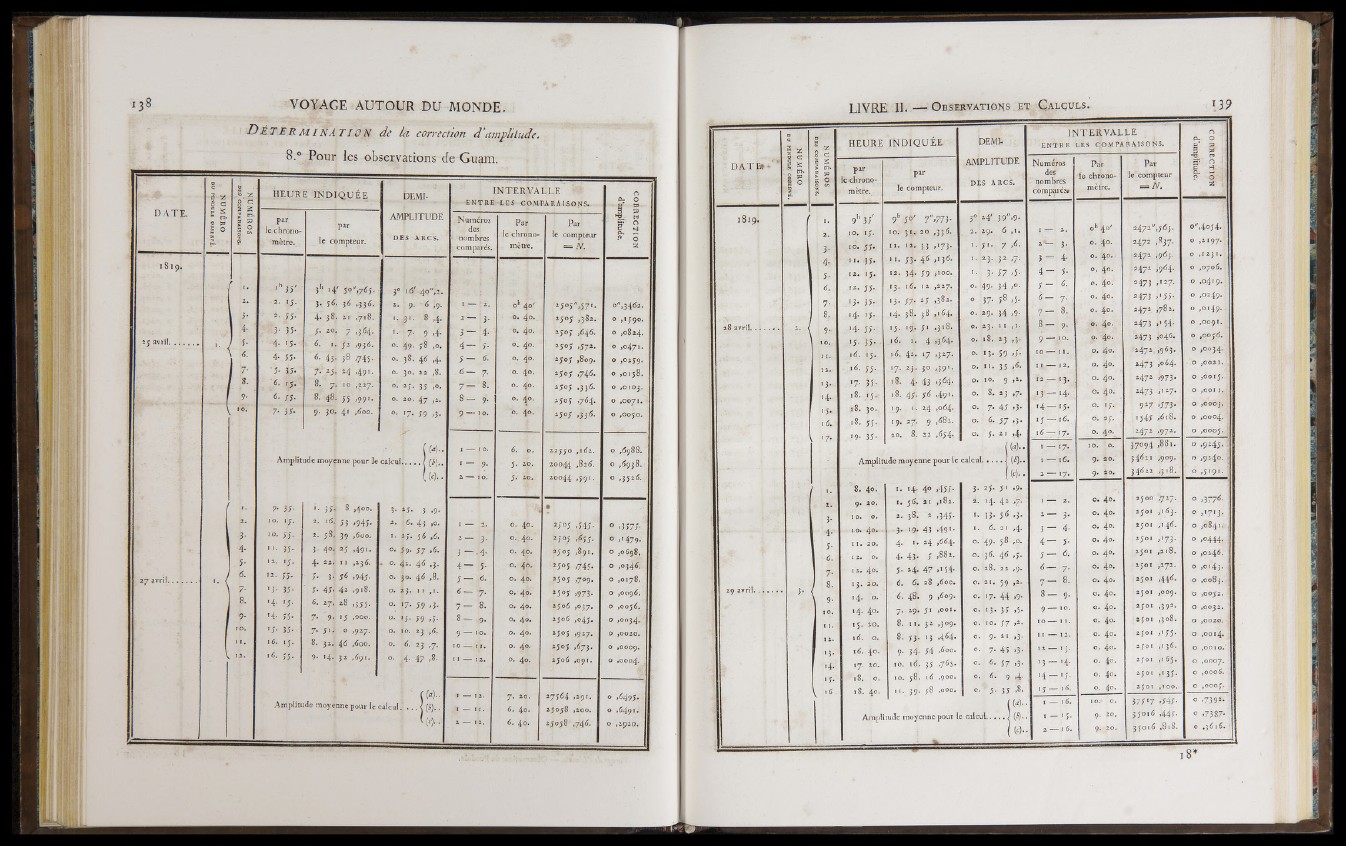 138 VOYAGE AUTOUR DU MONDE.
DÉTERMINATION de la correction d'amplitude.
8.° Pour les observations de Guam.
DATE. NUMÉRO DU PENDULE OBSERVÉ. NUMÉROS DES COMPARAISONS. HEURE INDIQUÉE par le chronomètre. par le compteur. DEMI-AMPLITUDE DES ARCS. INTERVALLE ENTRE LES COMPARAISONS. Numéros des nombres comparés. Par le chronomètre. Par le compteur = N. CORRECTION d'amplitude.
1819.
1. 1h 35' 3h 14' 50",765. 3° 16' 40",2.
2. 2. 15. 3. 56. 36 ,336. 2. 9. 6 ,9. 1 — 2. 0h 40' 2505",571. 0",3462.
3. 2. 55. 4. 38. 21 ,718. 1. 31. 8 ,4. 2 — 3. 0. 40. 2505 ,382. 0 ,1590.
4. 3. 35. 5. 20. 7 ,364. 1. 7. 9 ,4. 3 — 4. 0. 40. 2505 ,646. 0 ,0824.
25 avril. 5. 4. 15. 6. 1. 52 ,936. 0. 49. 58 ,0. 4 — 5. 0. 40. 2505 ,572. 0 ,0471.
6. 4. 55. 6. 43. 38 ,745. 0. 38. 46 ,4. 5 — 6. 0. 40. 2505 ,809. 0 ,0259.
7. 5. 35. 7. 25. 24 ,491. 0. 30. 22 ,8. 6 — 7. 0. 40. 2505 ,746. 0 ,0158.
8. 6. 15. 8. 7. 10 ,227. 0. 25. 35 ,0. 7 — 8. 0. 40. 2505 ,336. 0 ,0103.
9. 6. 55. 8. 48. 55 ,991. 0. 20. 47 ,2. 8 — 9. 0. 40. 2505 ,764. 0 ,0071.
10. 7. 35. 9. 30. 41 ,600. 0. 17. 59 ,3. 9 — 10. 0. 40. 2505 ,336. 0 ,0050.
Amplitude moyenne pour le calcul (a). 1 — 10. 6. 0. 22550 ,162. 0 ,6988.
(b). 1 — 9. 5. 20. 20044 ,826. 0 ,6938.
(c). 2 — 10. 5. 20. 20044 ,591. 0 ,3526.
1. 9. 35. 1. 35. 8 ,400. 3. 25. 3 ,9.
2. 10. 15. 2. 16. 53 ,945. 2. 6. 43 ,0. 1 — 2. 0. 40. 2505 ,545. 0 ,3575.
3. 10. 55. 2. 58. 39 ,600. 1. 25. 56 ,6. 2 — 3. 0. 40. 2505 ,655. 0 ,1479.
4. 11. 35. 3. 40. 25 ,491. 0. 59. 57 ,6. 3 — 4. 0. 40. 2505 ,891. 0 ,0698.
5. 12. 15. 4. 22. 11 ,236. 0. 42. 46 ,3. 4 — 5. 0. 40. 2505 ,745. 0 ,0346.
27 avril. 1. 6. 12. 55. 5. 3. 56 ,945. 0. 30. 46 ,8. 5 — 6. 0. 40. 2505 ,709. 0 ,0178.
7. 13. 35. 5. 45. 42 ,918. 0. 23. 11 ,1. 6 — 7. 0. 40. 2505 ,973. 0 ,0096.
8. 14. 15. 6. 27. 28 ,955. 0. 17. 59 ,3. 7 — 8. 0. 40. 2506 ,037. 0 ,0056.
9. 14. 55. 7. 9. 15 ,000. 0. 13. 59 ,5. 8 — 9. 0. 40. 2506 ,045. 0 ,0034.
10. 15. 35. 7. 51. 0 ,927. 0. 10. 23 ,6. 9 — 10. 0. 40. 2505 ,927. 0 ,0020.
11. 16. 15. 8. 32. 46 ,600. 0. 6. 23 ,7. 10 — 11. 0. 40. 2505 ,673. 0 ,0009.
12. 16. 55. 9. 14. 32 ,691. 0. 4. 47 ,8. 11 — 12. 0. 40. 2506 ,091. 0 ,0004.
Amplitude moyenne pour le calcul (a). 1 — 12. 7. 20. 27564 ,291. 0 ,6495.
(b). 1 — 11. 6. 40. 25058 ,200. 0 ,6491.
(c). 2 — 12. 6. 40. 25058 ,746. 0 ,2920.
LIVRE II. — OBSERVATIONS ET CALCULS. 139
DATE. NUMÉRO DU PENDULE OBSERVÉ. NUMÉROS DES COMPARAISONS. HEURE INDIQUÉE par le chronomètre. par le compteur. DEMI-AMPLITUDE DES ARCS. INTERVALLE ENTRE LES COMPARAISONS. Numéros des nombres comparés. Par le chronomètre. Par le compteur = N. CORRECTION d'amplitude.
1819.
1. 9h 35' 9h 50' 7",773. 3° 24' 39",9.
2. 10. 15. 10. 31. 20 ,336. 2. 29. 6 ,1. 1 — 2. 0h 40' 2472",563. 0",4054.
3. 10. 55. 11. 12. 33 ,173. 1. 51. 7 ,6. 2 — 3. 0. 40. 2472 ,837. 0 ,2197.
4. 11. 35. 11. 53. 46 ,136. 1. 23. 32 ,7. 3 — 4. 0. 40. 2472 ,963. 0 ,1231.
5. 12. 15. 12. 34. 59 ,100. 1. 3. 57 ,5. 4 — 5. 0. 40. 2472 ,964. 0 ,0706.
6. 12. 55. 13. 16. 12 ,227. 0. 49. 34 ,0. 5 — 6. 0. 40. 2473 ,127. 0 ,0419.
7. 13. 35. 13. 57. 25 ,382. 0. 37. 58 ,5. 6 — 7. 0. 40. 2473 ,155. 0 ,0249.
8. 14. 15. 14. 38. 38 ,164. 0. 29. 34 ,9. 7 — 8. 0. 40. 2472 ,782. 0 ,0149.
28 avril. 2. 9. 14. 55. 15. 19. 51 ,318. 0. 23. 11 ,1. 8 — 9. 0. 40. 2473 ,154. 0 ,0091.
10. 15. 35. 16. 1. 4 ,364. 0. 18. 23 ,3. 9 — 10. 0. 40. 2473 ,046. 0 ,0056.
11. 16. 15. 16. 42. 17 ,327. 0. 13. 59 ,5. 10 — 11. 0. 40. 2472 ,963. 0 ,0034.
12. 16. 55. 17. 23. 30 ,391. 0. 11. 35 ,6. 11 — 12. 0. 40. 2473 ,064. 0 ,0021.
13. 17. 35. 18. 4. 43 ,364. 0. 10. 9 ,2. 12 — 13. 0. 40. 2472 ,973. 0 ,0015.
14. 18. 15. 18. 45. 56 ,491. 0. 8. 23 ,7. 13 — 14. 0. 40. 2473 ,127. 0 ,0011.
15. 18. 30. 19. 1. 24 ,064. 0. 7. 45 ,3. 14 — 15. 0. 15. 927 ,573. 0 ,0003.
16. 18. 55. 19. 27. 9 ,682. 0. 6. 57 ,3. 15 — 16. 0. 25. 1545 ,618. 0 ,0004.
17. 19. 35. 20. 8. 22 ,654. 0. 5. 21 ,4. 16 — 17. 0. 40. 2472 ,972. 0 ,0005.
Amplitude moyenne pour le calcul (a). 1 — 17. 10. 0. 37094 ,881. 0 ,9245.
(b). 1 — 16. 9. 20. 34621 ,909. 0 ,9240.
(c). 2 — 17. 9. 20. 34622 ,318. 0 ,5191.
1. 8. 40. 1. 14. 40 ,455. 3. 25. 51 ,9.
2. 9. 20. 1. 56. 21 ,182. 2. 14. 42 ,7. 1 — 2. 0. 40. 2500 ,727. 0 ,3776.
3. 10. 0. 2. 38. 2 ,345. 1. 33. 56 ,3. 2 — 3. 0. 40. 2501 ,163. 0 ,1713.
4. 10. 40. 3. 19. 43 ,491. 1. 6. 21 ,4. 3 — 4. 0. 40. 2501 ,146. 0 ,0841.
5. 11. 20. 4. 1. 24 ,664. 0. 49. 58 ,0. 4 — 5. 0. 40. 2501 ,173. 0 ,0444.
6. 12. 0. 4. 43. 5 ,882. 0. 36. 46 ,5. 5 — 6. 0. 40. 2501 ,218. 0 ,0246.
7. 12. 40. 5. 24. 47 ,154. 0. 28. 22 ,9. 6 — 7. 0. 40. 2501 ,272. 0 ,0143.
8. 13. 20. 6. 6. 28 ,600. 0. 21. 59 ,2. 7 — 8. 0. 40. 2501 ,446. 0 ,0083.
29 avril. 3. 9. 14. 0. 6. 48. 9 ,609. 0. 17. 44 ,9. 8 — 9. 0. 40. 2501 ,009. 0 ,0052.
10. 14. 40. 7. 29. 51 ,001. 0. 13. 35 ,5. 9 — 10. 0. 40. 2501 ,392. 0 ,0032.
11. 15. 20. 8. 11. 32 ,309. 0. 10. 57 ,2. 10 — 11. 0. 40. 2501 ,308. 0 ,0020.
12. 16. 0. 8. 53. 13 ,464. 0. 9. 21 ,3. 11 — 12. 0. 40. 2501 ,155. 0 ,0014.
13. 16. 40. 9. 34. 54 ,600. 0. 7. 45 ,3. 12 — 13. 0. 40. 2501 ,136. 0 ,0010.
14. 17. 20. 10. 16. 35 ,765. 0. 6. 57 ,3. 13 — 14. 0. 40. 2501 ,165. 0 ,0007.
15. 18. 0. 10. 58. 16 ,900. 0. 6. 9 ,4. 14 — 15. 0. 40. 2501 ,135. 0 ,0006.
16 18. 40. 11. 39. 58 ,000. 0. 5. 35 ,8. 15 — 16. 0. 40. 2501 ,100. 0 ,0005.
Amplitude moyenne pour le calcul (a). 1 — 16. 10. 0. 37517 ,545. 0 ,7392.
(b). 1 — 15. 9. 20. 35016 ,445. 0 ,7387.
(c). 2 — 16. 9. 20. 35016 ,818. 0 ,3616.
18*